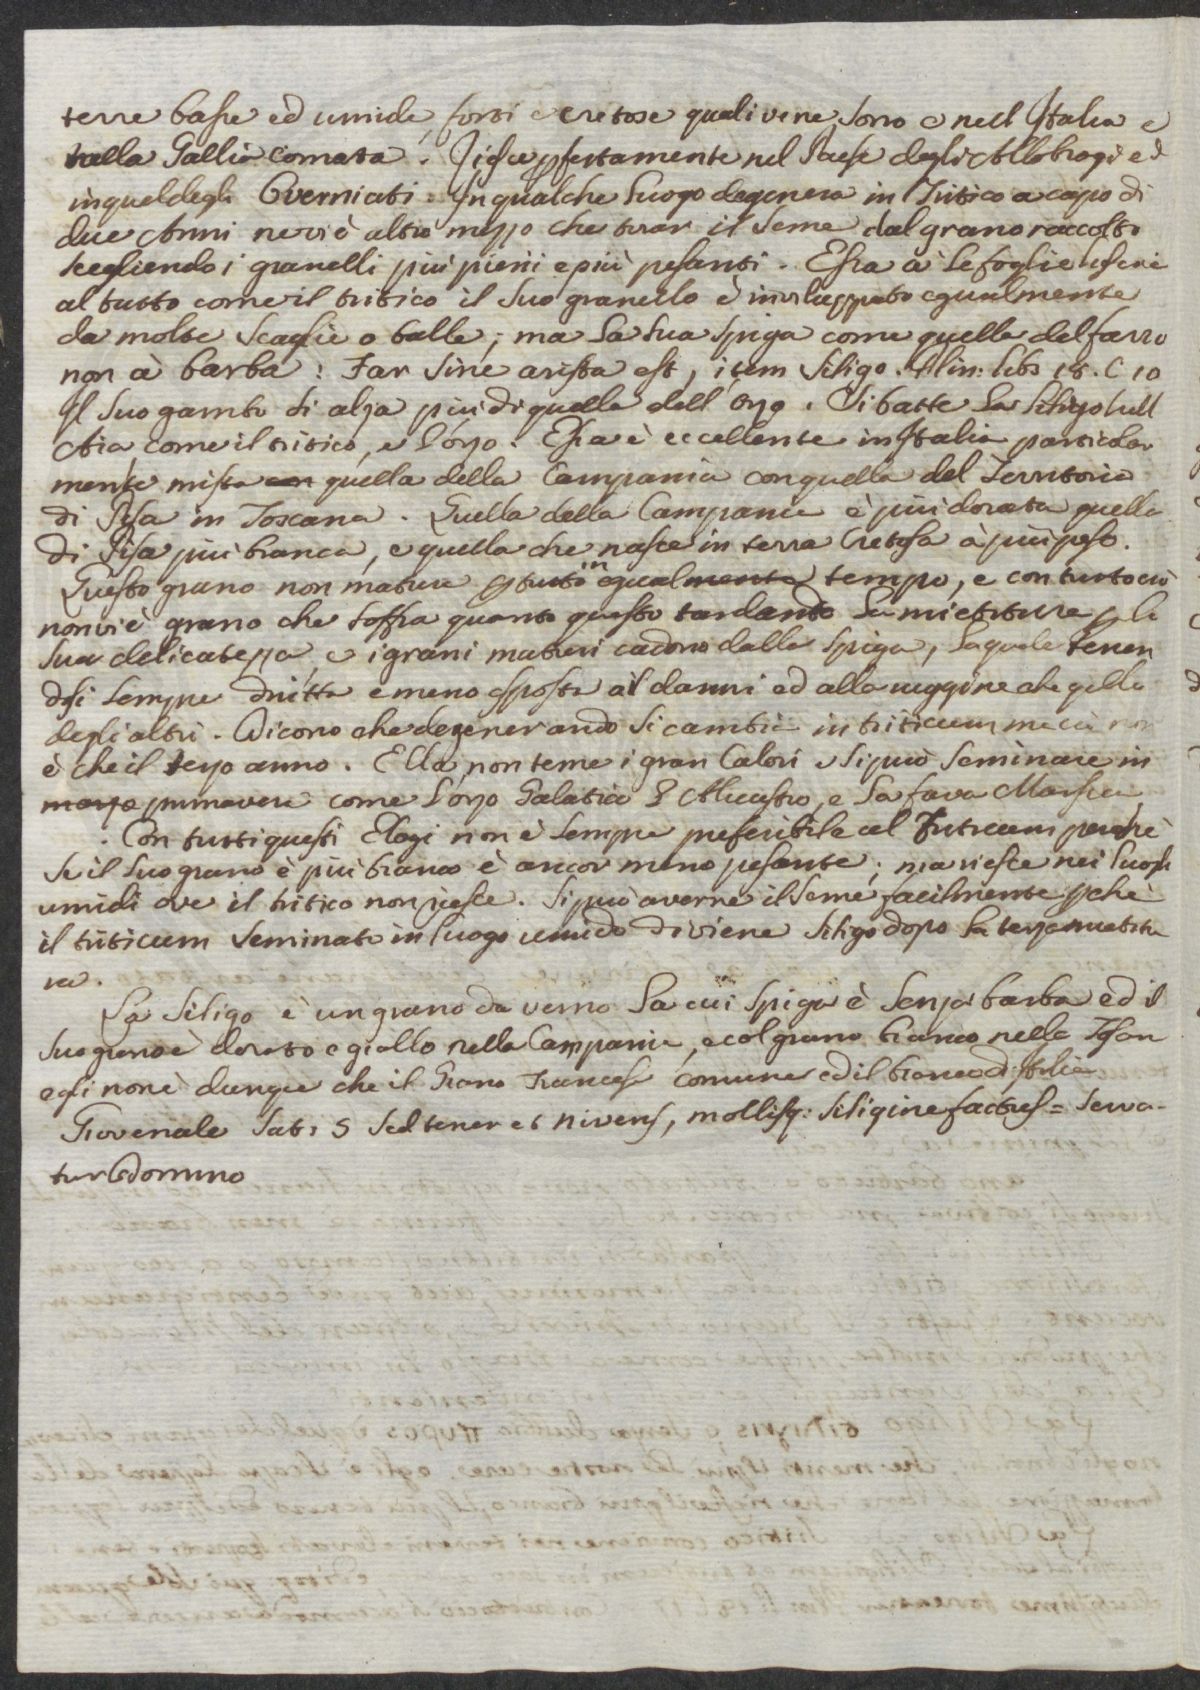 terre basse ed umide, forti e cretose quali vene sono e nell Italia e
nella Gallia comata. Riesce pfettamente nel Paese degli Allobrogi ed
in quel degli Overniati. In qualche luogo degenera in Tritico a capo di
due Anni ne vi è altro mezzo che tirar il seme dal grano raccolto
scegliendo i granelli più pieni e più pesanti. Essa à le foglie
al tutto come il tritico il suo granello è inviluppato egualmente
da molte scaglie o balle; ma la sua spiga come quella del farro
non à barba: Far sine arista est, item siligo. Plin: lib: 18. C 10
Il suo gambo si alza più di quello dell' orzo. Si batte la siligo sull
Aia come il tritico, e l'orzo. Essa è eccellente in Italia particolar
mente mista con quella della Campania con quella del Territorio
di Pisa in Toscana. Quella della Campania è più dorata quella
di Pisa più bianca, e quella che nasce in terra Cretosa à più peso.
Questo grano non matura tutto in egualmente tempo, e con tutto ciò
non vi è grano che soffra quanto questo tardando la mietitura p la
sua delicatezza, e i grani maturi cadono dalla spiga, la quale tenen
dosi sempre dritta e meno esposta ai danni ed alla ruggine che quella
degli altri. Dicono che degenerando si cambia in triticum ma ciò non
è che il terzo anno. Ella non teme i gran Calori e si può seminare in
marzo primavera come l'orzo Galatico l'Alicastro, e la fava Marsica
Con tutti questi Elogi non è sempre preferibile al Triticum perchè
se il suo grano è più bianco è ancor meno pesante; ma riesce nei luoghi
umidi ove il tritico non riesce. Si può averne il seme facilmente pchè
il triticum seminato in luogo umido diviene siligo dopo la terza mietitu
ra.
La Siligo è un grano da verno la cui spiga è senza barba ed il
suo grano è dorato e giallo nella Campania, e col grano bianco nella Tosan
egli non è dunque che il Grano Francese comune ed il bianco d'Italia
Giovenale Sat: 5 Sed tener et nivens, mollisq: siligine factus = serva-
tur domino